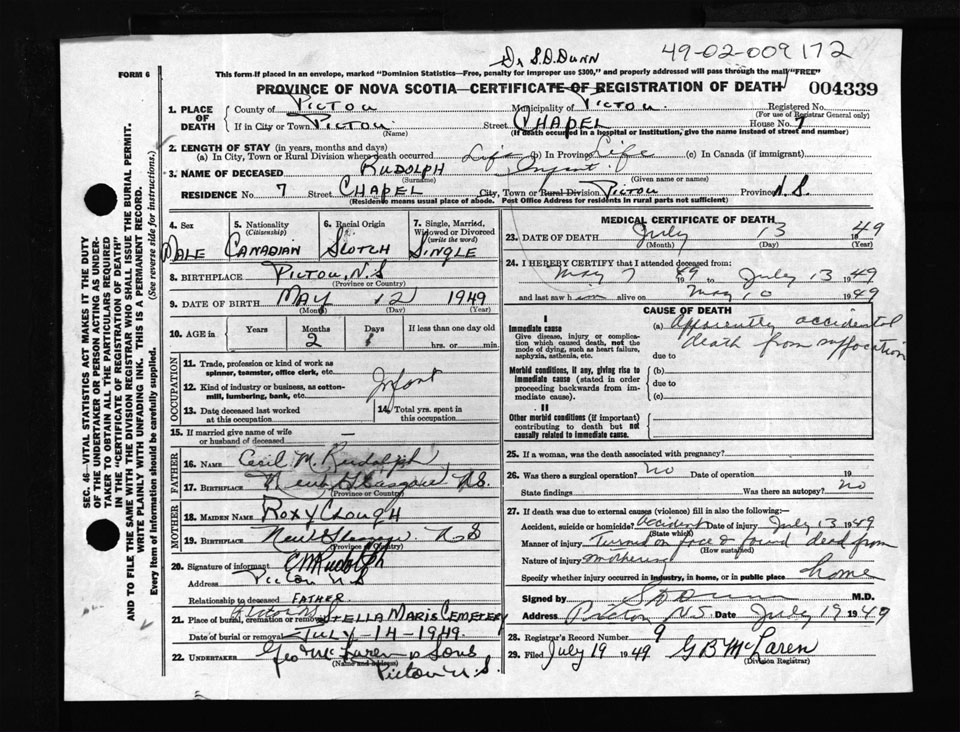 Dr S.D. DUNN
49-02-009172
FORM 6
This form if placed in an envelope, marked "Dominion Statistics—Free, penalty for improper use $300," and properly addressed will pass through the mail "FREE"
PROVINCE OF NOVA SCOTIA—CERTIFICATE OF REGISTRATION OF DEATH
004339
1. PLACE OF DEATH
County of PICTOU Municipality of PICTOU Registered No.
(For use of Registrar General only)
If in City or Town PICTOU Street CHAPEL House No. 7
(Name) (If death occurred in a hospital or institution, give the name instead of street and number)
2. LENGTH OF STAY (in years, months and days)
(a) In City, Town or Rural Division where death occurred Life (b) In Province Life (c) In Canada (if immigrant)
3. NAME OF DECEASED RUDOLPH Infant
(Surname) (Given name or names)
RESIDENCE No. 7 Street CHAPEL City, Town or Rural Division PICTOU Province N.S.
(Residence means usual place of abode. Post Office Address for residents in rural parts not sufficient)
4. Sex
MALE
5. Nationality
(Citizenship)
CANADIAN
6. Racial Origin
SCOTCH
7. Single, Married,
Widowed or Divorced
(write the word)
SINGLE
8. BIRTHPLACE PICTOU, N.S
(Province or Country)
9. DATE OF BIRTH MAY 12 1949
(Month) (Day) (Year)
10. AGE in Years Months Days If less than one day old
2 1 hrs. or min.
OCCUPATION
11. Trade, profession or kind of work as
spinner, teamster, office clerk, etc.
12. Kind of industry or business, as cotton-
mill, lumbering, bank, etc.
Infant
13. Date deceased last worked
at this occupation
14. Total yrs. spent in
this occupation
15. If married give name of wife
or husband of deceased —
FATHER
16. NAME Cecil M. Rudolph
17. BIRTHPLACE New Glasgow N.S.
(Province or Country)
MOTHER
18. MAIDEN NAME ROXY CLOUGH
19. BIRTHPLACE New Glasgow N S
(Province or Country)
20. Signature of informant C M Rudolph
Address Pictou N.S
Relationship to deceased FATHER.
21. Place of burial, cremation or removal Pictou N.S STELLA MARIS CEMETERY
Date of burial or removal JULY-14-1949.
22. UNDERTAKER Geo McLaren & Sons
(Name and address)
Pictou N.S.
MEDICAL CERTIFICATE OF DEATH
23. DATE OF DEATH July 13 1949
(Month) (Day) (Year)
24. I HEREBY CERTIFY that I attended deceased from:
May 7 1949 to July 13 1949
and last saw him alive on May 10 1949
CAUSE OF DEATH
I
Immediate cause
Give disease, injury or complica-
tion which caused death, not the
mode of dying, such as heart failure,
asphyxia, asthenia, etc.
(a) Apparently accidental
death from suffocation
due to
Morbid conditions, if any, giving rise to
immediate cause (stated in order
proceeding backwards from im-
mediate cause).
(b)
due to
(c)
II
Other morbid conditions (if important)
contributing to death but not
causally related to immediate cause.
25. If a woman, was the death associated with pregnancy?
26. Was there a surgical operation? No Date of operation 19
State findings Was there an autopsy? no
27. If death was due to external causes (violence) fill in also the following:—
Accident, suicide or homicide? Accident Date of injury July 13 1949
(State which)
Manner of injury Turned on face & found dead from
(How sustained)
Nature of injury smothering
Specify whether injury occurred in industry, in home, or in public place home
Signed by S D Dunn M.D.
Address Pictou N.S. Date July 19 1949
28. Registrar's Record Number 9
29. Filed July 19 1949 G B McLaren
(Division Registrar)
SEC. 46—VITAL STATISTICS ACT MAKES IT THE DUTY
OF THE UNDERTAKER OR PERSON ACTING AS UNDER-
TAKER TO OBTAIN ALL THE PARTICULARS REQUIRED
IN THE "CERTIFICATE OF REGISTRATION OF DEATH"
AND TO FILE THE SAME WITH THE DIVISION REGISTRAR WHO SHALL ISSUE THE BURIAL PERMIT.
WRITE PLAINLY WITH UNFADING INK. THIS IS A PERMANENT RECORD.
Every item of information should be carefully supplied. (See reverse side for instructions.)